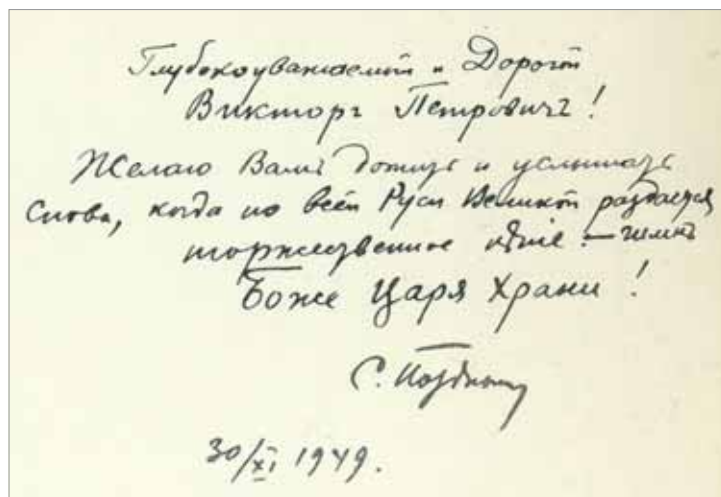 Глубокоуважаемый и Дорогой
Викторъ Петровичъ!
Желаю Вамъ дожить и услышать
снова, когда по всей Руси Великой раздастся
торжественное пѣніе: — гимнъ
Боже Царя Храни!
С.
30/XI 1949.